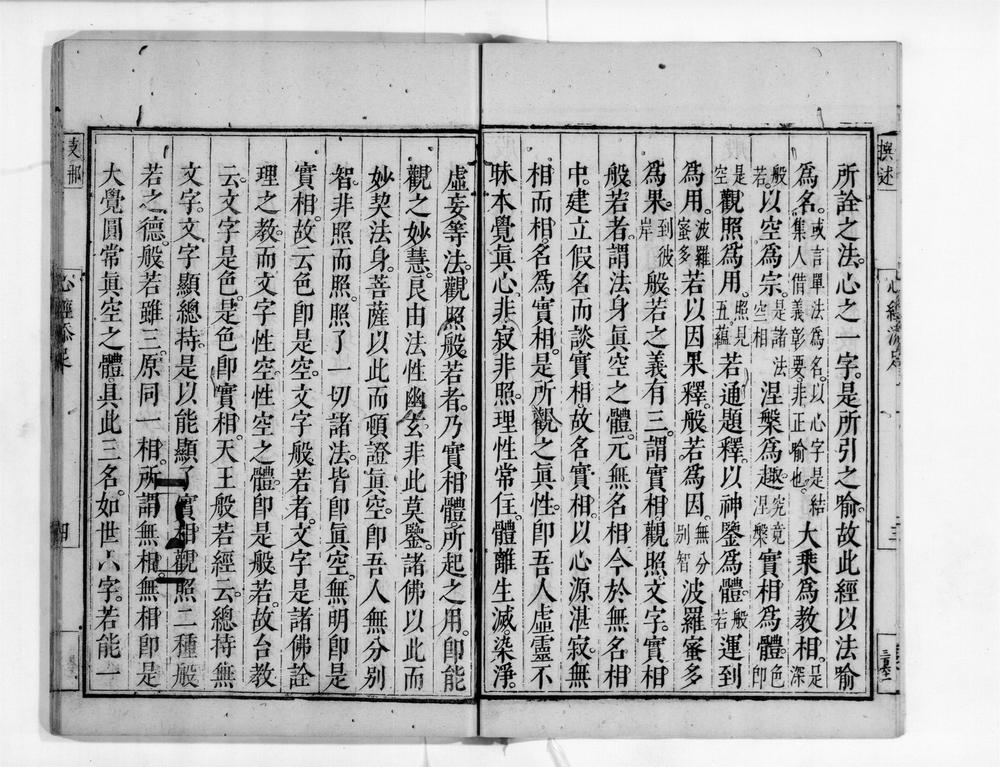 撰述 心經添足 三
所詮之法。心之一字。是所引之喻。故此經以法喻
爲名。或言單法爲名。以心字是結集人借義彰要。非正喻也。大乘爲敎相。是深
般若。以空爲宗。是諸法空相涅槃爲趣。究竟涅槃實相爲體。色卽
是空觀照爲用。照見五蘊若通題釋。以神鑒爲體。般若運到
爲用。波羅蜜多若以因果釋。般若爲因。無分別智波羅蜜多
爲果。到彼岸般若之義有三。謂實相觀照。文字。實相
般若者。謂法身眞空之體。元無名相。今於無名相
中。建立假名而談實相。故名實相。以心源湛寂。無
相而相。名爲實相。是所觀之眞性。卽吾人虛靈不
昧本覺眞心。非寂非照。理性常住。體離生滅。染淨。
虛妄等法。觀照般若者。乃實相體。所起之用。卽能
觀之妙慧。良由法性幽玄。非此莫鑒。諸佛以此而
妙契法身。菩薩以此而頓證眞空。卽吾人無分別
智。非照而照。照了一切諸法。皆卽眞空。無明卽是
實相。故云色卽是空。文字般若者。文字是諸佛詮
理之敎。而文字性空。性空之體。卽是般若。故台敎
云。文字是色。是色卽實相。天王般若經云。總持無
文字。文字顯總持。是以能顯了實相觀照二種般
若之德。般若雖三。原同一相。所謂無相。無相卽是
大覺圓常眞空之體。具此三名。如世𠆢字。若能一
支那 心經添足 四